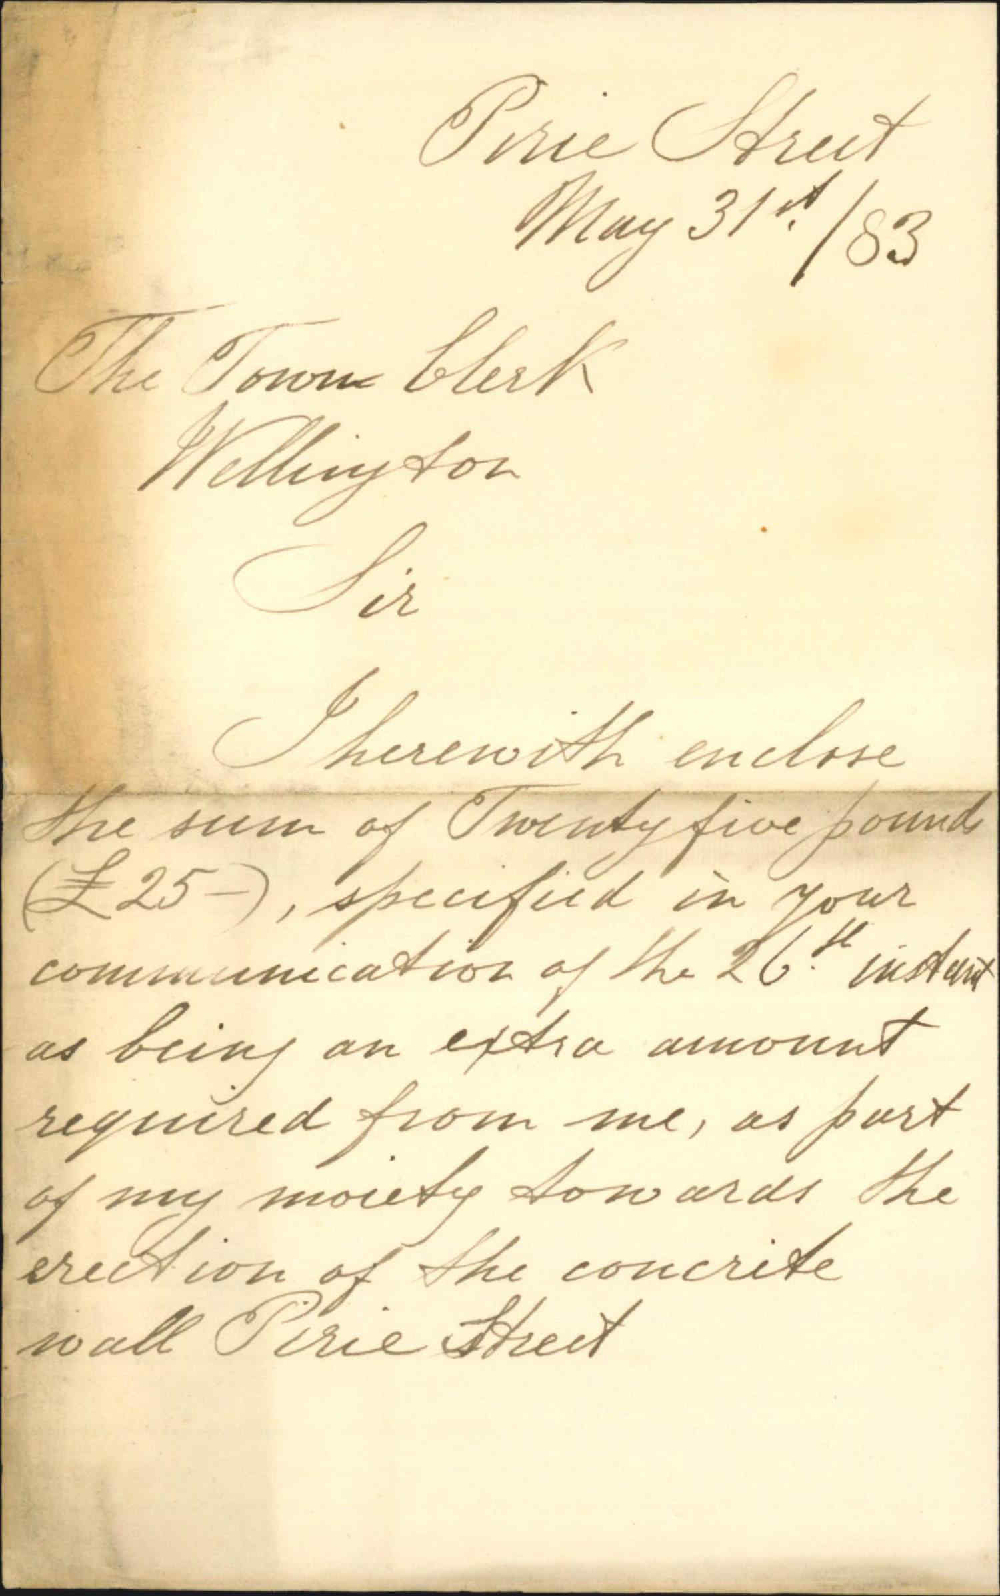 Pirie Street
May 31st. /83
The Town Clerk
Wellington
Sir
I herewith enclose
the sum of Twenty five pounds
(£25-), specified in your
communication of the 26.th instant
as being an extra amount
required from me, as part
of my moiety towards the
erection of the concrete
wall Pirie Street